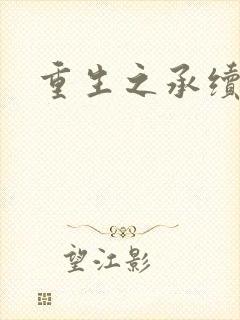 重生之承续
望江影